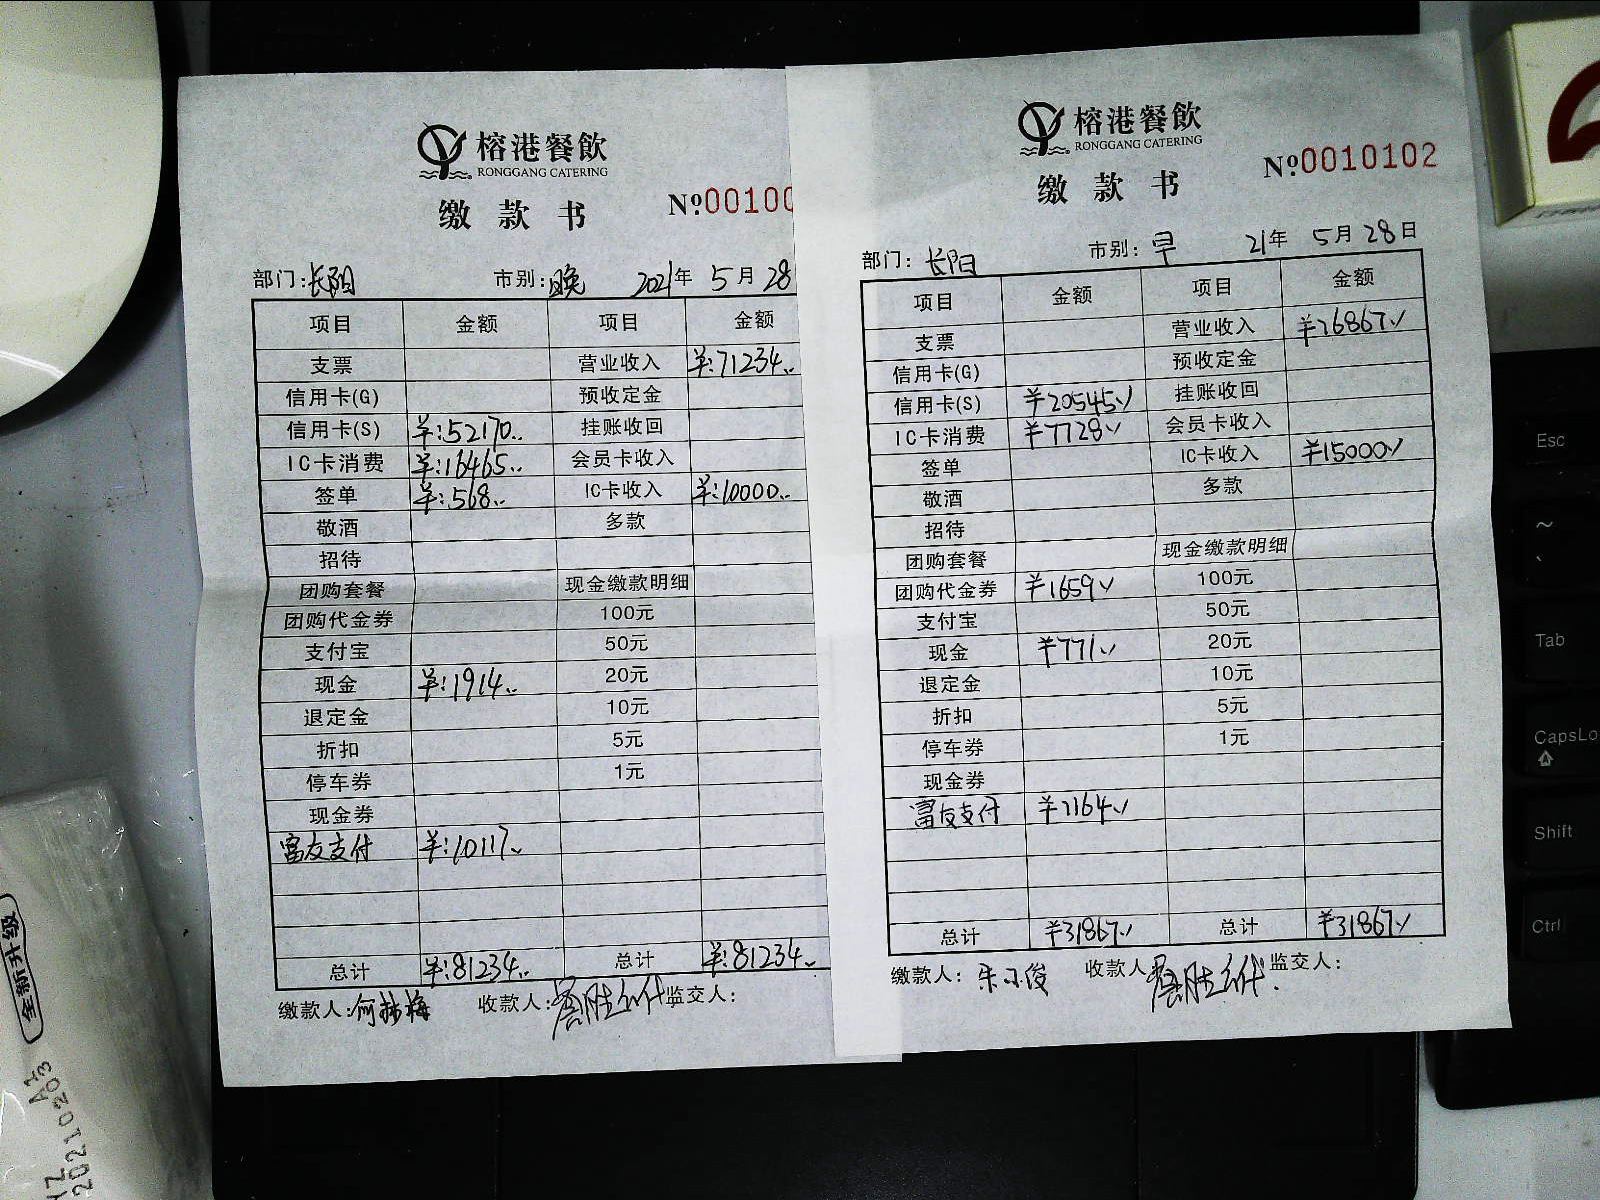 榕港餐飲
RONGGANG CATERING
缴款书
№00100
部门:长阳 市别:晚 2021年 5月 28
项目 金额 项目 金额
支票 营业收入 ¥:71234..
信用卡(G) 预收定金
信用卡(S) ¥:52170.. 挂账收回
IC卡消费 ¥:16465.. 会员卡收入
签单 ¥:568.. IC卡收入 ¥:10000..
敬酒 多款
招待
团购套餐 现金缴款明细
团购代金券 100元
支付宝 50元
现金 ¥:1914.. 20元
退定金 10元
折扣 5元
停车券 1元
现金券
富友支付 ¥:10117..
总计 ¥:81234.. 总计 ¥:81234..
缴款人: 收款人: 监交人:
榕港餐飲
RONGGANG CATERING
缴款书
№0010102
部门:长阳 市别:早 21年 5月 28日
项目 金额 项目 金额
支票 营业收入 ¥16867
信用卡(G) 预收定金
信用卡(S) ¥20545 挂账收回
IC卡消费 ¥7728 会员卡收入
签单 IC卡收入 ¥15000
敬酒 多款
招待
团购套餐 现金缴款明细
团购代金券 ¥1659 100元
支付宝 50元
现金 ¥771 20元
退定金 10元
折扣 5元
停车券 1元
现金券
富友支付 ¥1164
总计 ¥31867 总计 ¥31867
缴款人:朱小俊 收款人 监交人:
Esc
~
Tab
CapsLo
Shift
Ctrl
全新升级
20210203